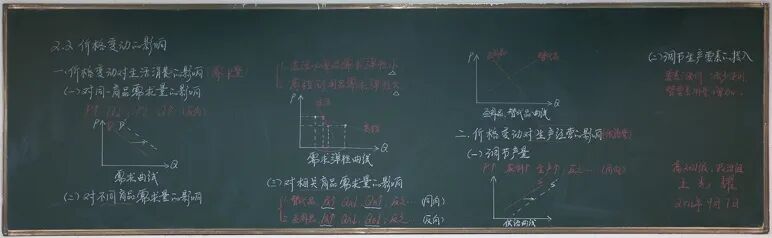 2.2 价格变动的影响
一.价格变动对生活消费的影响(需求量)
(一)对同一商品需求量的影响
P↑ Q↓, P↓ Q↑ (反向)
P
D
D'
Q
需求曲线
(二)对不同商品需求量的影响
1. 生活必需品需求弹性小
2. 高档耐用品需求弹性大
P
Q
需求弹性曲线
(三)对相关商品需求量的影响
1. 替代品
(同向)
2. 互补品
(反向)
P
互补品
替代品
Q
互补品、替代品曲线
二.价格变动对生产经营的影响(供给量)
(一)调节产量
P↑ 获利↑ 生产↑ 反之… (同向)
P
S
S'
Q
供给曲线
(二)调节生产要素的投入